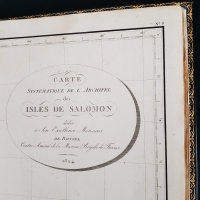 N.º 8
CARTE
SYSTÉMATIQUE DE L'ARCHIPEL
des
ISLES DE SALOMON
dédiée
à Son Excellence Monsieur
DE ROSSEL
Contre Amiral de la Marine Royale de France
1824